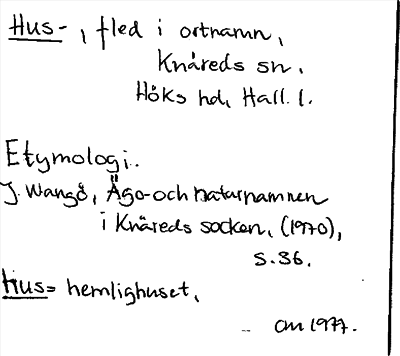 Hus-, fled i ortnamn,
Knäreds sn.
Höks hd, Hall. l.
Etymologi.
J. Wangö, Ägo-och naturnamnen
i Knäreds socken, (1970),
s. 36.
Hus = hemlighuset,
am 1977.